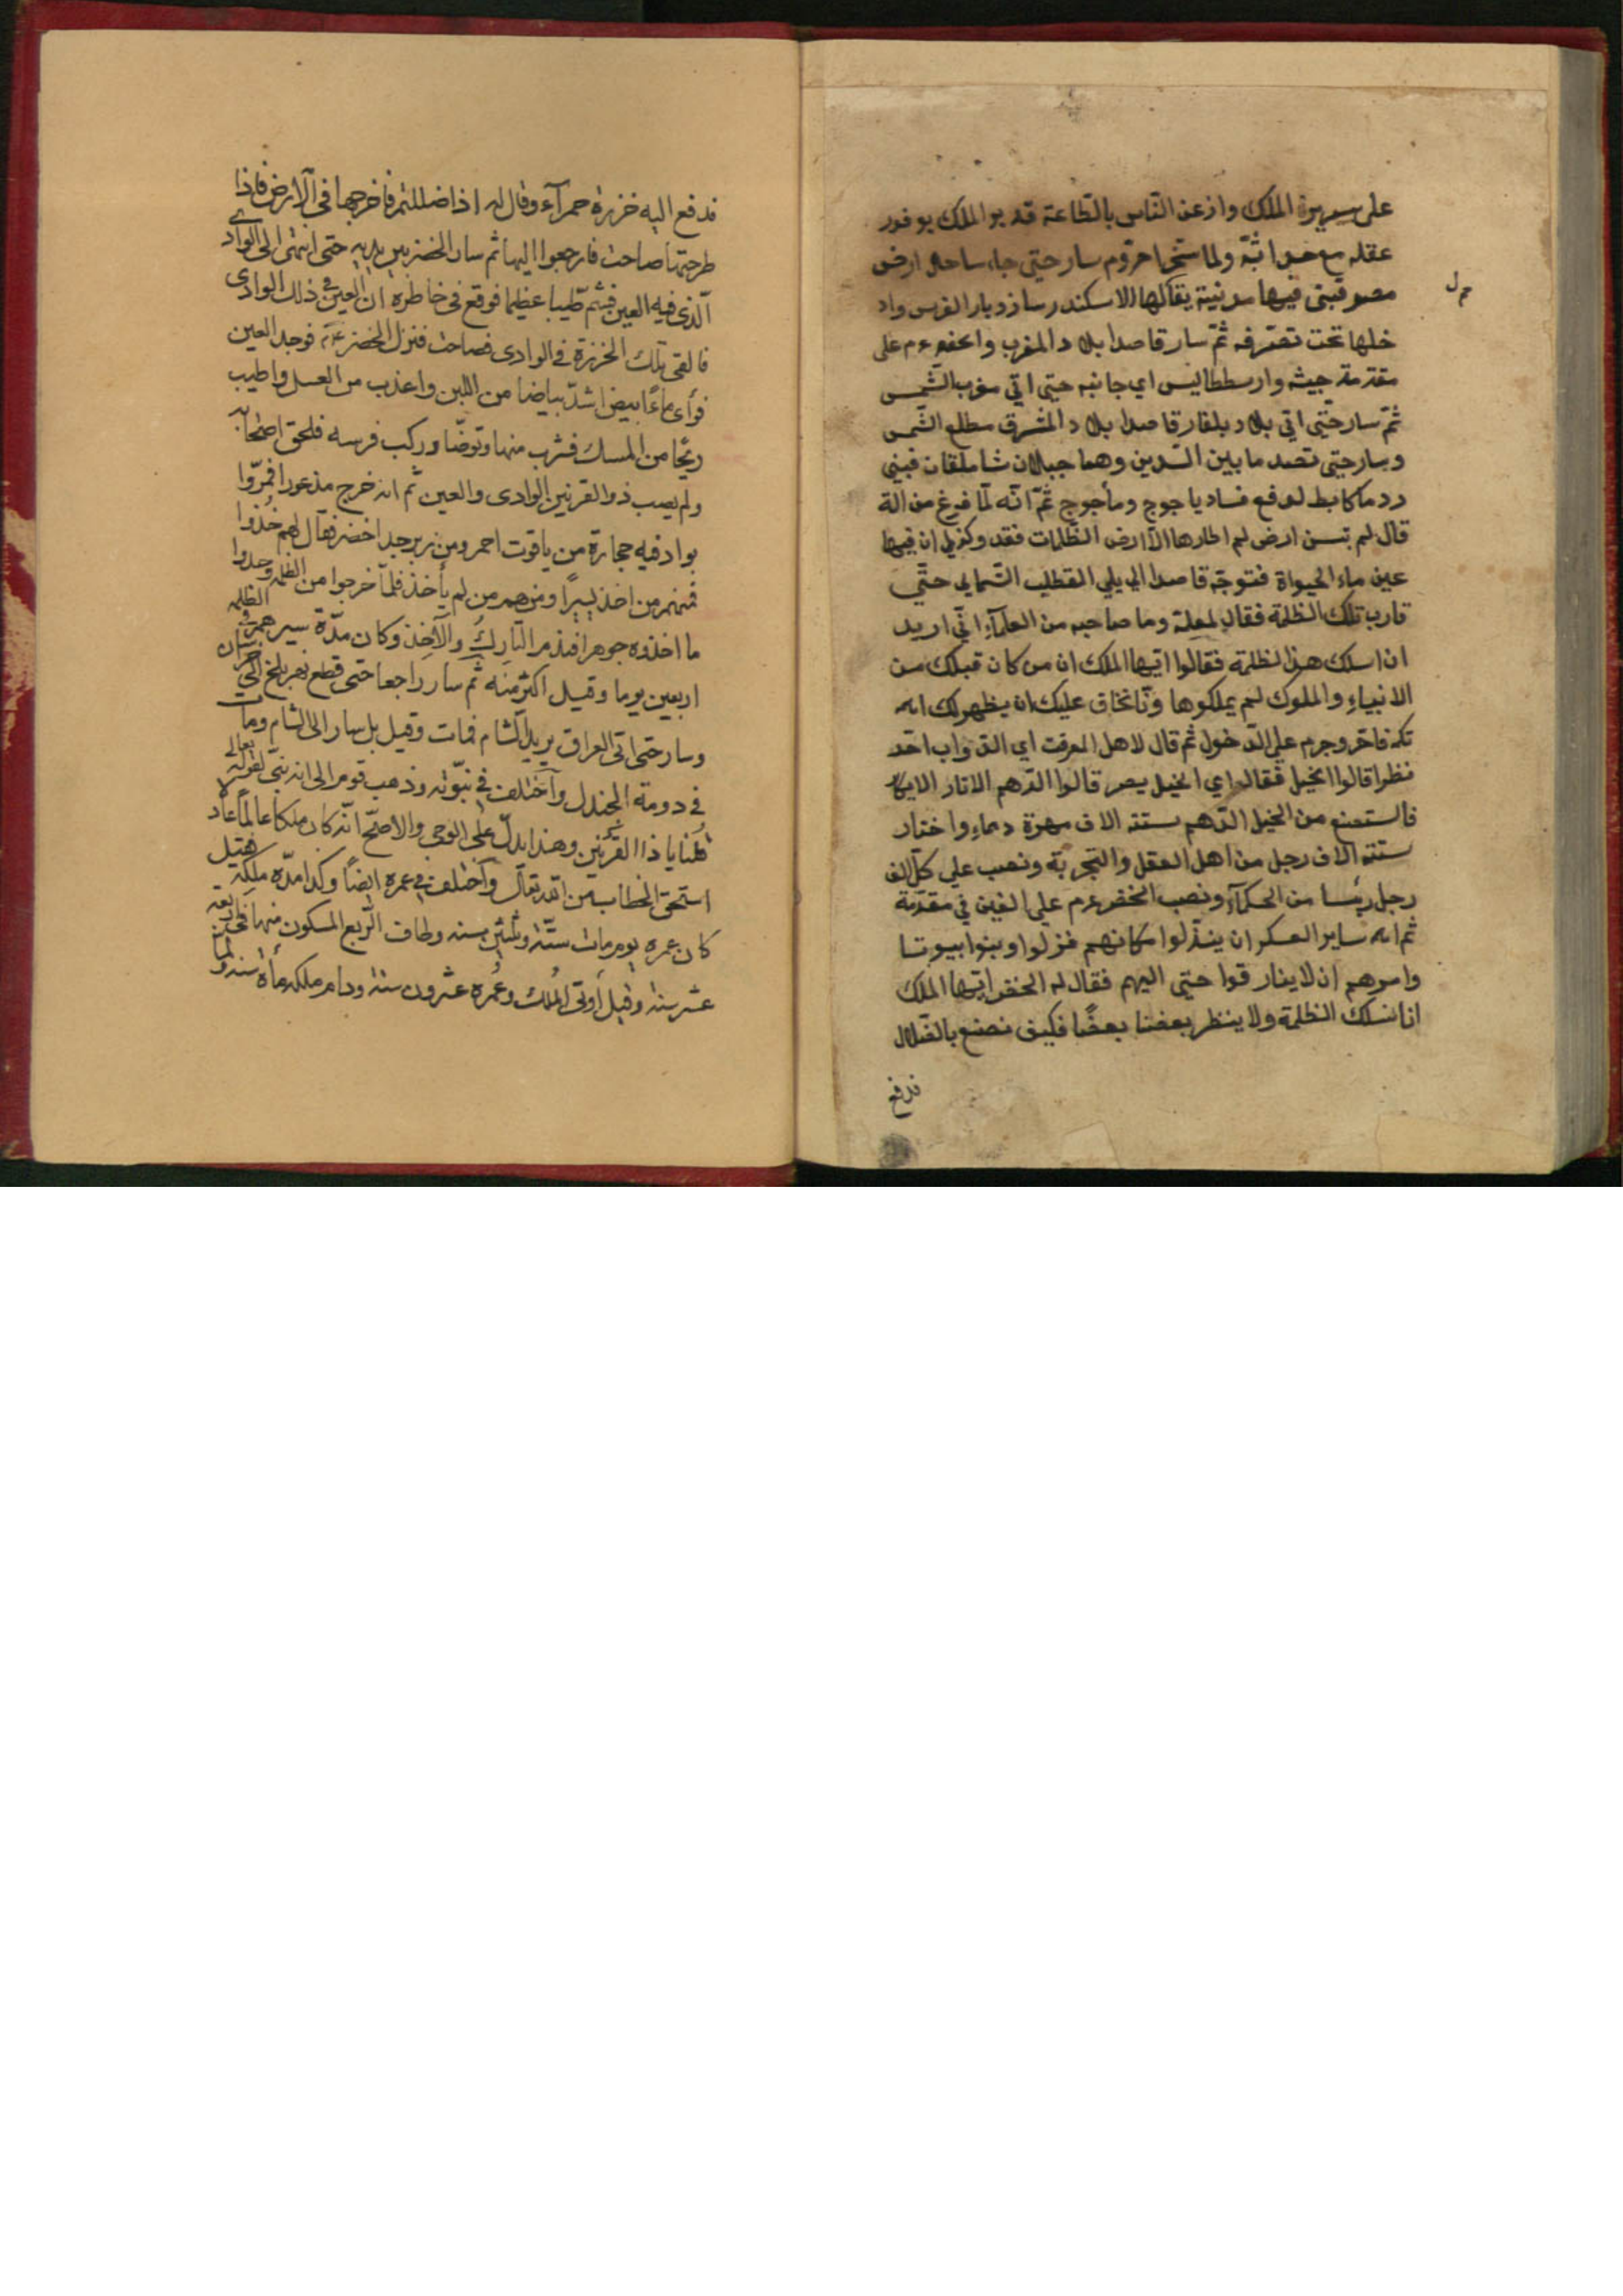 على سريرة الملك واذعن الناس بالطاعة قد بر الملك بوفور
عقله مع حداثته ولما استخرا حروم سار حتى جاء ساحل ارض
مصر فبنى فيها مدينة يقال لها الاسكندر ساز ديار الفرس واد
خلها تحت تصرفه ثم سار قاصدا بلاد المغرب والخضر عم على
مقدمة جيشه وارسططاليس اي جانبه حتى اتي مغرب الشمس
ثم سار حتى اتي بلاد بلغار قاصدا بلاد المشرق مطلع الشمس
وسار حتى قصد ما بين السدين وهما جبلان شاملقان فبني
ردما كابط لدفع فساد ياجوج ومأجوج ثم انه لما فرغ من الة
قال لم تبسن ارض لم اطارها الا ارض الظلمات فقد وكزلي ان فيها
عين ماء الحيواة فتوجه قاصدا الي يلي القطب الشمالي حتي
قارب تلك الظلمة فقال لمعلة وما صاحبه من العلمآء اني اريد
ان اسلك هذا لظلمة فقالوا ايها الملك ان من كان قبلك من
الانبياء والملوك لم يملكوها ونا نخاف عليك ان يظهر لك امر
تكره فاخر وجرم على الدخول ثم قال لاهل المعرفت اي الدواب احد
نظرا قالوا الخيل فقال اي الخيل بصر قالوا الدهم الاناز الابكار
فالستصنع من الخيل الدهم ستة الاف مهرة دماء واختار
ستة الاف رجل من اهل العقل والتجربة ونصب علي كل الف
رجل رئسا من الحكمآء ونصب الخضر عم على الفين في مقدمة
ثم امر ساير العسكر ان ينذلوا مكانهم فنزلوا وبنوا بيوتا
وامرهم ان لا يفارقوا حتى اليهم فقال له الخضر ايها الملك
انا نسلك الظلمة ولا ينظر بعضنا بعضا فكيف نصنع بالضلال
فدفع
فدفع اليه خزرة حمرآء وقال له اذا ضللتم فاخرجها في الارض فاذا
طرحتها صاحت فارجعوا اليها ثم سار الخضر بين يديه حتى انتهى الى الوادي
الذى فيه العين فشم طيبا عظيما فوقع فى خاطره ان العين في ذلك الوادى
فالقى تلك الخرزة في الوادى فصاحت فنزل الخضر عم فوجد العين
فرأى ماءً ابيض اشد بياضا من اللبن واعذب من العسل واطيب
ريحا من المسك فشرب منها وتوضا وركب فرسه فلحق اصحابه
ولم يصب ذو القرنين الوادى والعين ثم انه خرج مذعورا فمروا
بواد فيه حجارة من ياقوت احمر ومن زبرجد اخضر فقال لهم خذوا
فمنهم من اخذ يسيرا ومنهم من لم يأخذ فلما خرجوا من الظلمه وجدوا
ما اخذوه جوهرا فندم التارك والآخذ وكان مدة سيرهم في الظلمه
اربعين يوما وقيل اكثر منه ثم سار راجعا حتى قطع نهر بلخ الى خراسان
وسار حتى اتى العراق يريد الشام فمات وقيل بل سار الى الشام ومات
في دومة الجندل واختلف في نبوته وذهب قوم الى انه نبى لقوله تعالى
قلنا يا ذا القرنين وهذا يدل على الوحى والاصح انه كان ملكا عالما عادلا
استحق الخطاب من الله تعالى واختلف في عمره ايضا وكذا مدة ملكه فقيل
كان عمره يوم مات ستة وثلثين سنه وطاف الربع المسكون منها فى اربعة
عشر سنة وقيل اوتى الملك وعمره عشرون سنة ودام ملكه مأة سنه ولما